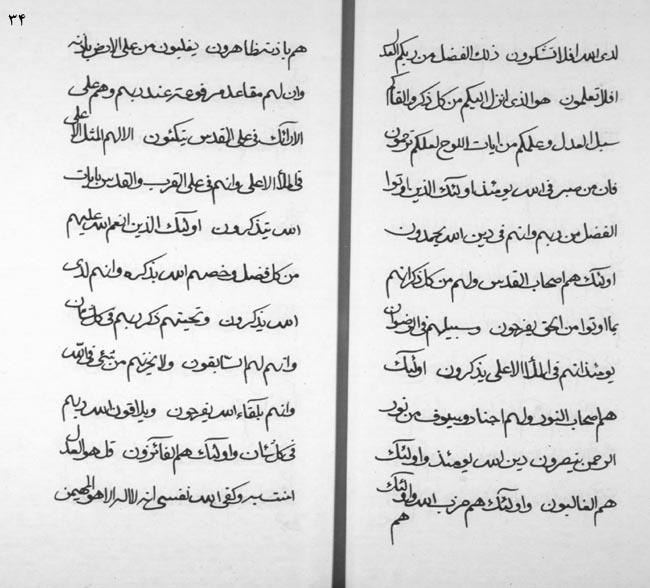 ٣۴
لدی الله افلا تشکرون ذلک الفضل من ربکم لعلکم
افلا تعلمون هو الذی انزل الیکم من کل ذکر و القاکم
سبل العدل و علمکم من ایات اللوح لعلکم ترحمون
فان من صبر فی الله یومئذ اولئک الذین اوتوا
الفضل من ربهم و انهم فی دین الله یحمدون
اولئک هم اصحاب القدس و لهم من کل ذکر انهم
بما اوتوا من الحق یفرحون و سبیلهم فی الرضوان
یومئذ انهم فی الملأ الاعلی یذکرون اولئک
هم اصحاب النور و لهم اجناد و سیوف من نور
الرحمن ینصرون دین الله یومئذ و اولئک
هم الغالبون و اولئک هم حزب الله و اولئک
هم
هم باذنه ظاهرون یغلبون من علی الارض باذنه
و ان لهم مقاعد مرفوعة عند ربهم و هم علی
الارائک فی علی القدس یتکئون الا لهم المثل الاعلی
فی الملأ الاعلی و انهم فی علی القرب و القدس بایات
الله یتذکرون اولئک الذین انعم الله علیهم
من کل فضل و خصهم الله بذکره و انهم لدی
الله یذکرون و تحیتهم ذکر ربهم فی کل شان
و انهم لهم السابقون و لا یحزنهم من شیء فی الله
و انهم بلقاء الله یفرحون و یلاقون الله ربهم
فی کل شان و اولئک هم الفائزون قل هو العدل
امنت به و کفی الله نفسی انه لا اله الا هو المهیمن